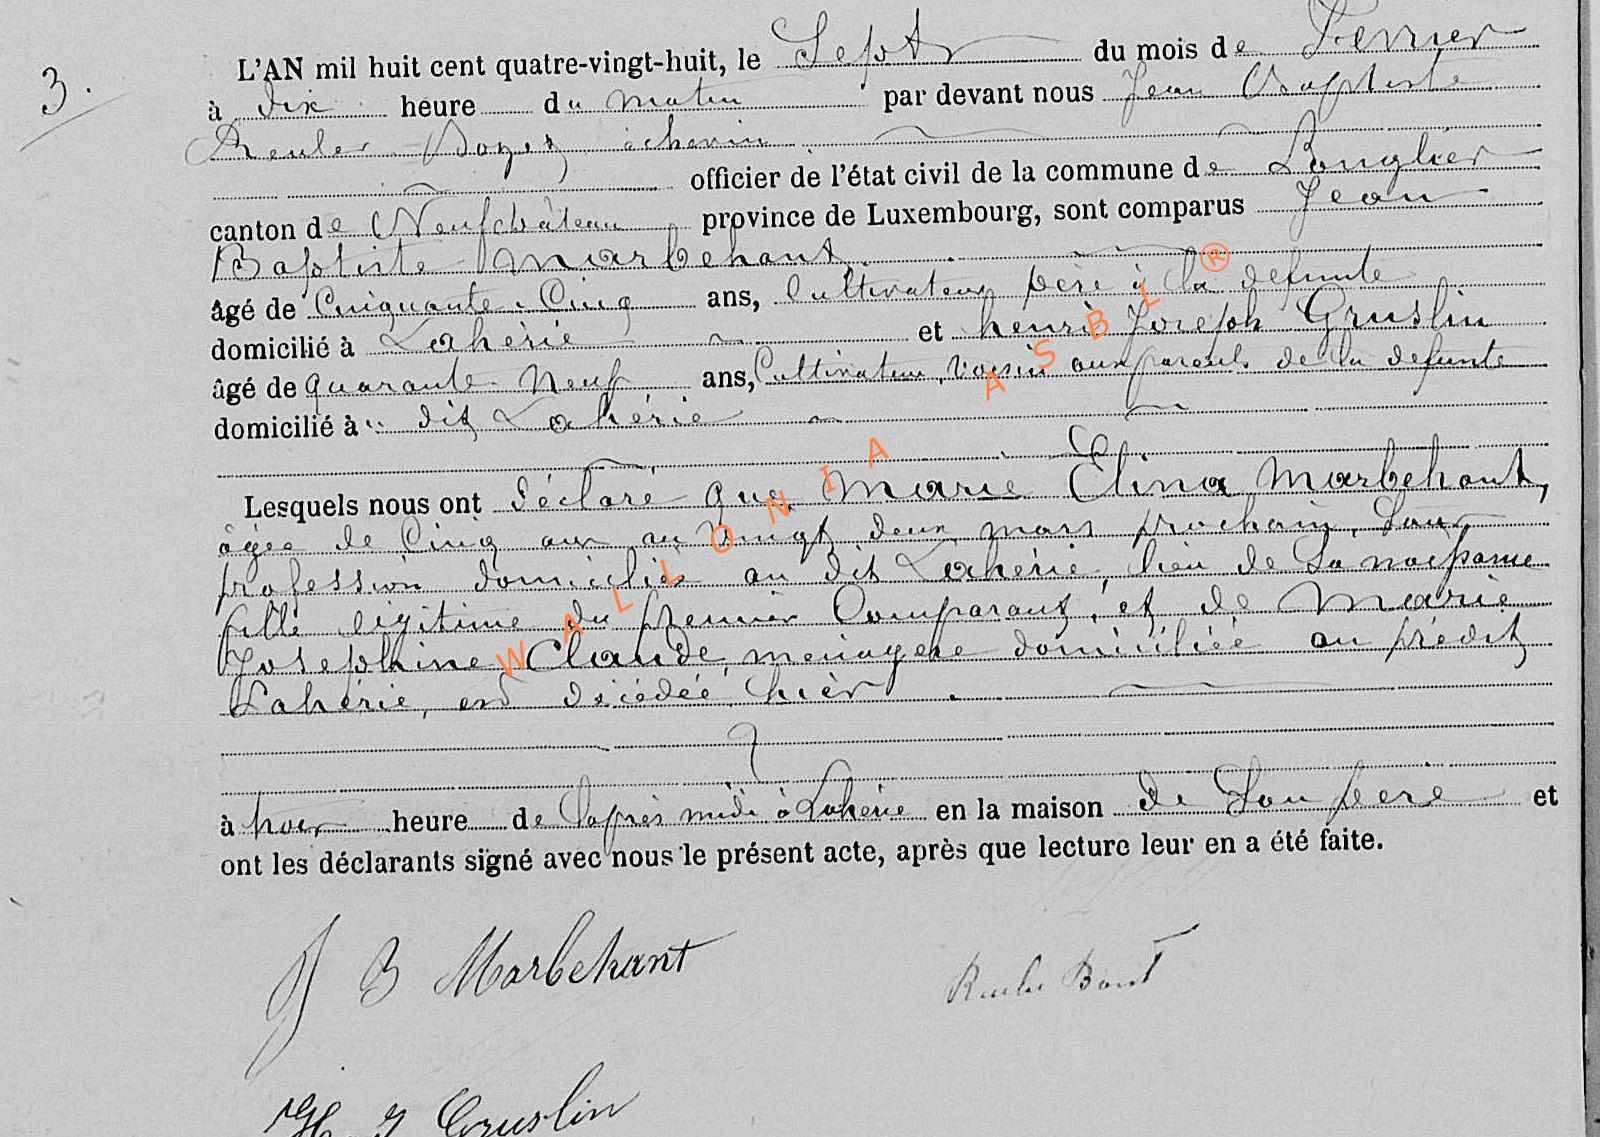 3.
L'AN mil huit cent quatre-vingt-huit, le Sept du mois de Fevrier
à dix heure du matin par devant nous Jean Baptiste
échevin
officier de l'état civil de la commune de Longlier
canton de Neufchâteau province de Luxembourg, sont comparus Jean
Baptiste Marbehant
âgé de Cinquante-Cinq ans, Cultivateur père à la defunte
domicilié à Lahérie et henri Joseph Gruslin
âgé de quarante-Neuf ans, Cultivateur, Voisin aux parents de la defunte
domicilié à dit Lahérie
Lesquels nous ont déclaré que Marie Elina Marbehant,
âgée de Cinq ans au vingt deux mars prochain, Sans
profession domiciliée au dit Lahérie, lieu de Sa naissance
fille légitime du premier Comparant, et de Marie
Josephine Claude, menagere domiciliée au prédit
Lahérie, est décédée hièr
à heure de l'après midi à Lahérie en la maison de Son père et
ont les déclarants signé avec nous le présent acte, après que lecture leur en a été faite.
J B Marbehant
H J Gruslin
WALLONIA ASBL ®